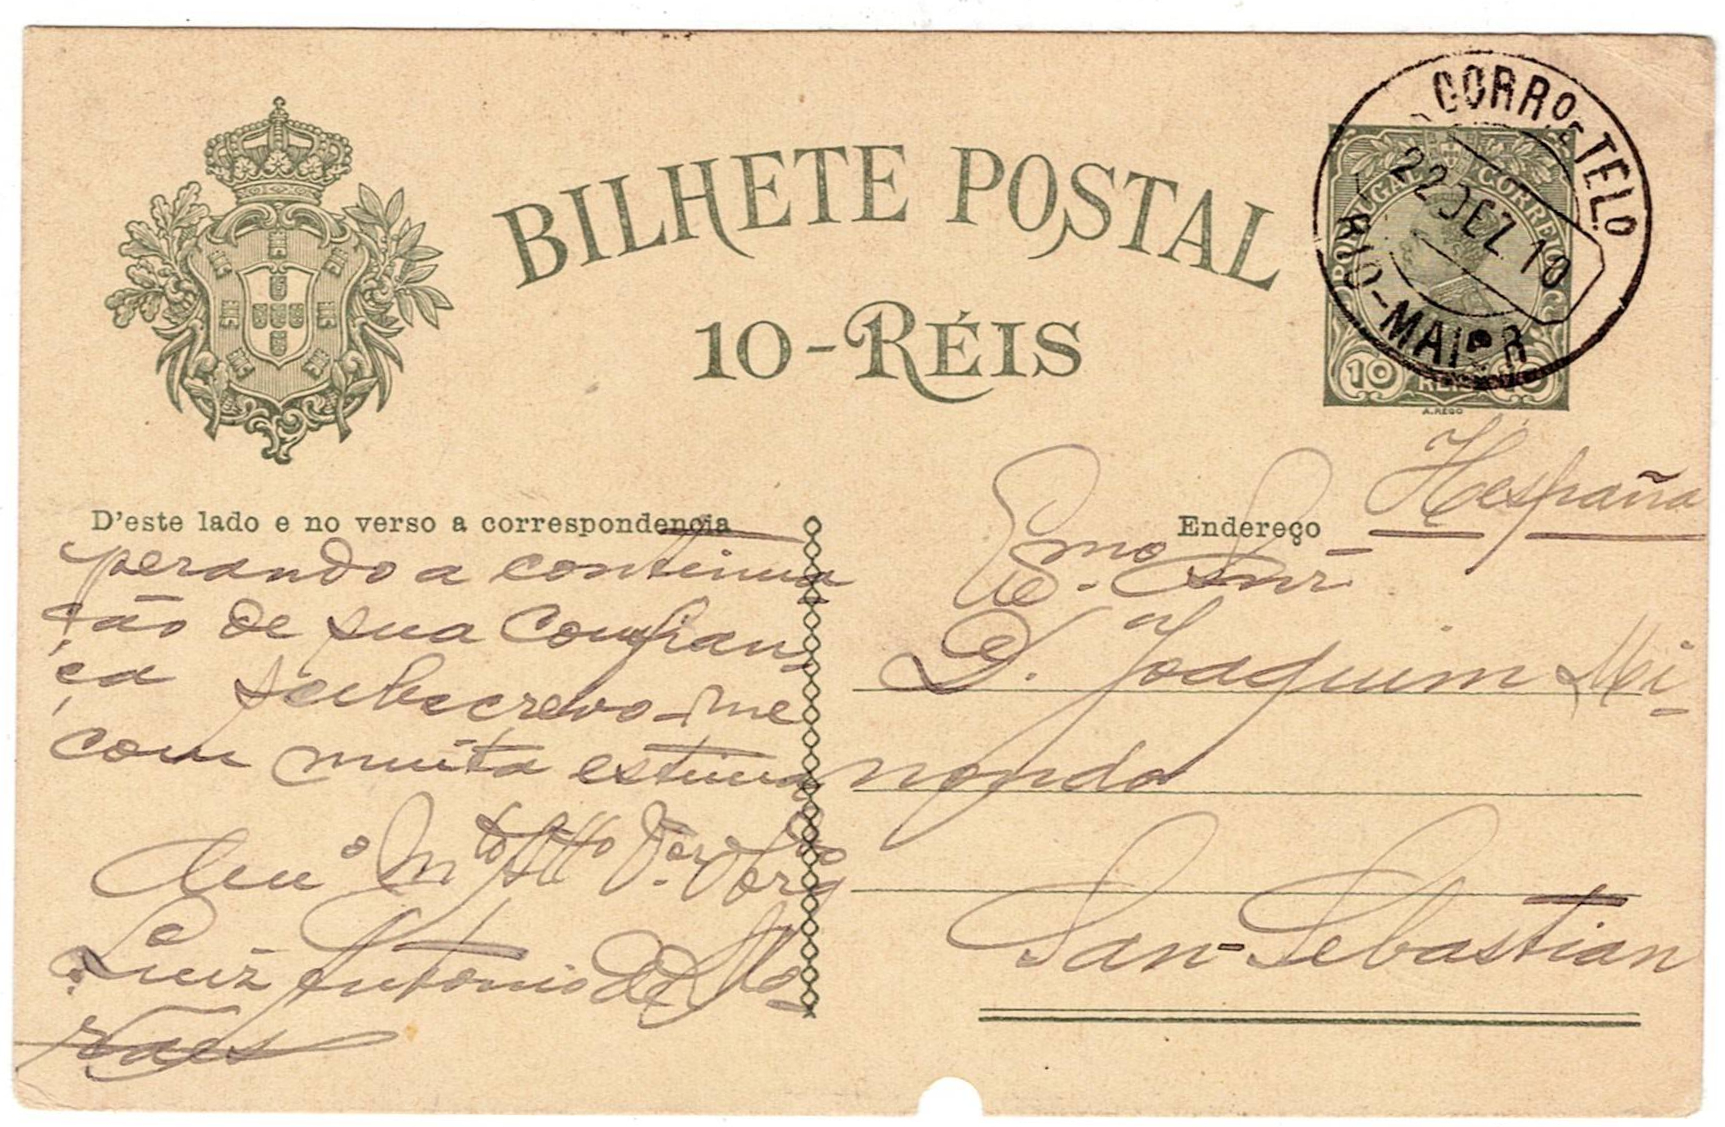 BILHETE POSTAL
10-RÉIS
CORRO. E TELO.
22 DEZ 10
RIO-MAIOR
PORTUGAL CORREIO
10 REIS 10
A. REGO
D'este lado e no verso a correspondencia
perando a continua
ção de sua confian-
ça subscrevo-me
com muita estima
Mto Atto Vor Obrgdo
Luiz Antonio de Mo-
raes
Endereço
Hespaña
Exmo. Snr
D. Joaquim Mi-
nondo
San-Sebastian